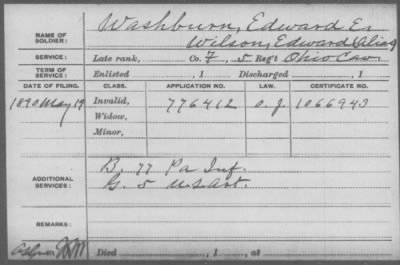 NAME OF SOLDIER: Washburn, Edward E.
Wilson, Edward (Alias)
SERVICE: Late rank, Co. F, 5 Reg't Ohio Cav.
TERM OF SERVICE: Enlisted , 1 Discharged , 1
DATE OF FILING. CLASS. APPLICATION NO. LAW. CERTIFICATE NO.
1890 May 19 Invalid, 776412 O. J. 1066943
Widow,
Minor,
ADDITIONAL SERVICES: B. 77 Pa Inf.
G. 5 U.S. Art.
REMARKS:
Died , 1 , at